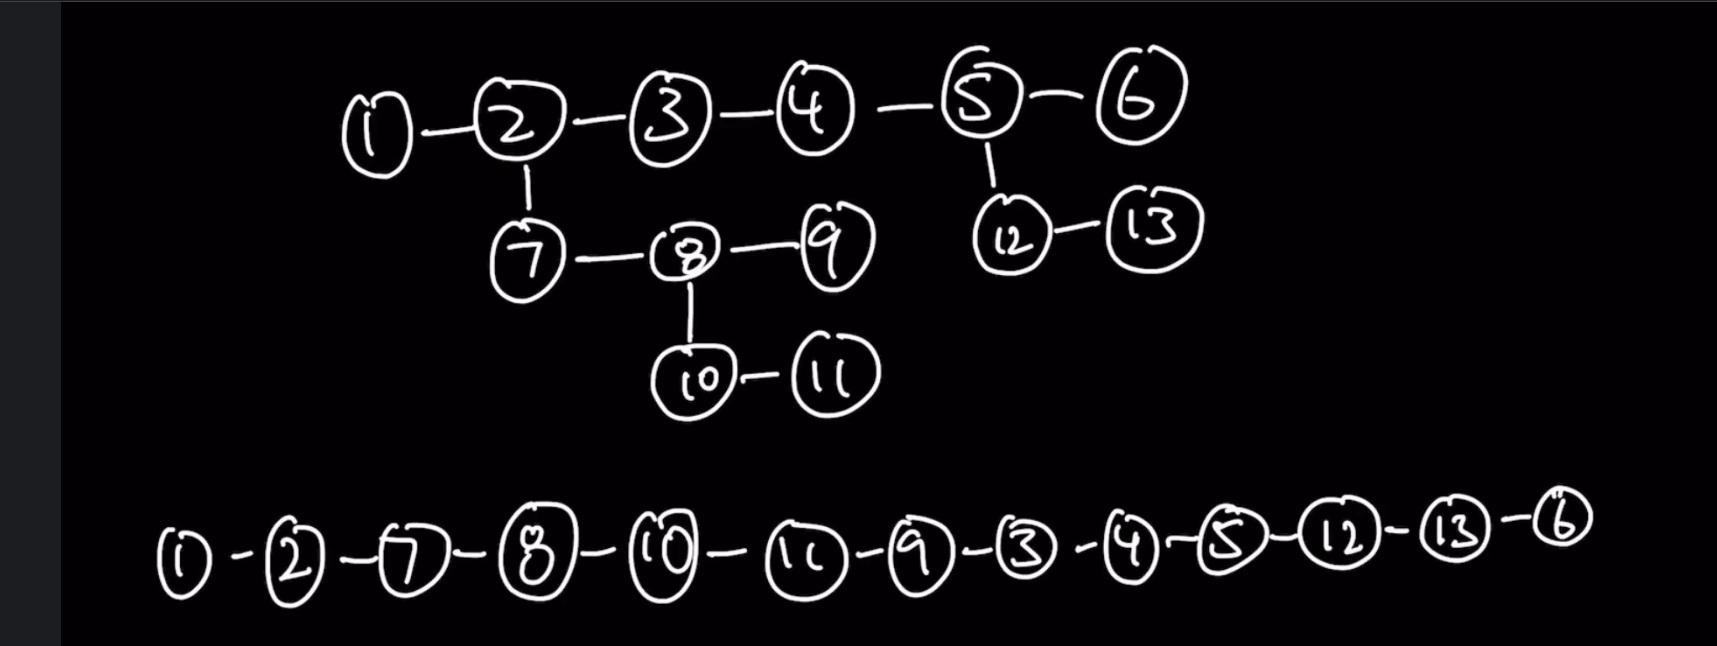 1 2 3 4 5 6
7 8 9 12 13
10 11
1 2 7 8 10 11 9 3 4 5 12 13 6